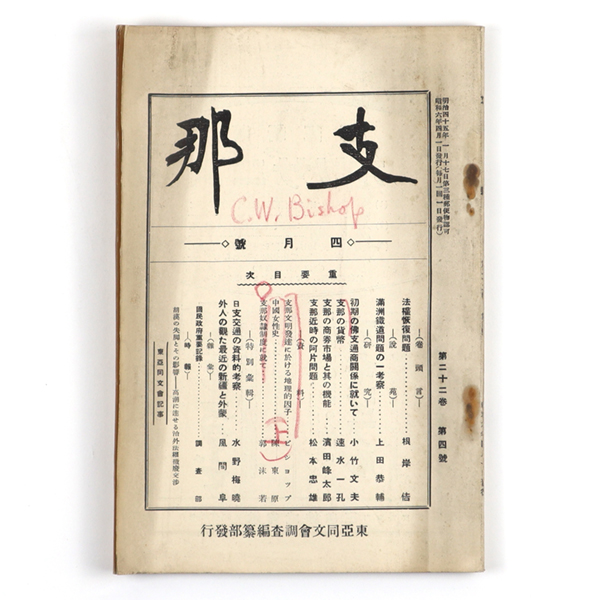 明治四十五年一月十七日第三種郵便物認可
昭和六年四月一日發行(每月一回一日發行)
第二十二卷 第四號
支那
C.W. Bishop
四月號
重要目次
(卷頭言)
法權恢復問題 根岸佶
(說苑)
滿洲鐵道問題の一考察 上田恭輔
(研究)
初期の佛支通商關係に就いて 小竹文夫
支那の貨幣 速水一孔
支那の商券市場と其の機能 濱田峰太郎
支那近時の阿片問題 松本忠雄
(資料)
支那文明發達に於ける地理的因子 ビショップ
中國女性史 陳東原
支那奴隷制度に就て 郭沫若
上
(特別彙輯)
日支交通の資料的考察 水野梅曉
外人の觀た最近の新疆と外蒙 風間阜
(雜彙)
國民政府重要記錄 調查部
(時報)
東亞同文會記事
東亞同文會調查編纂部發行